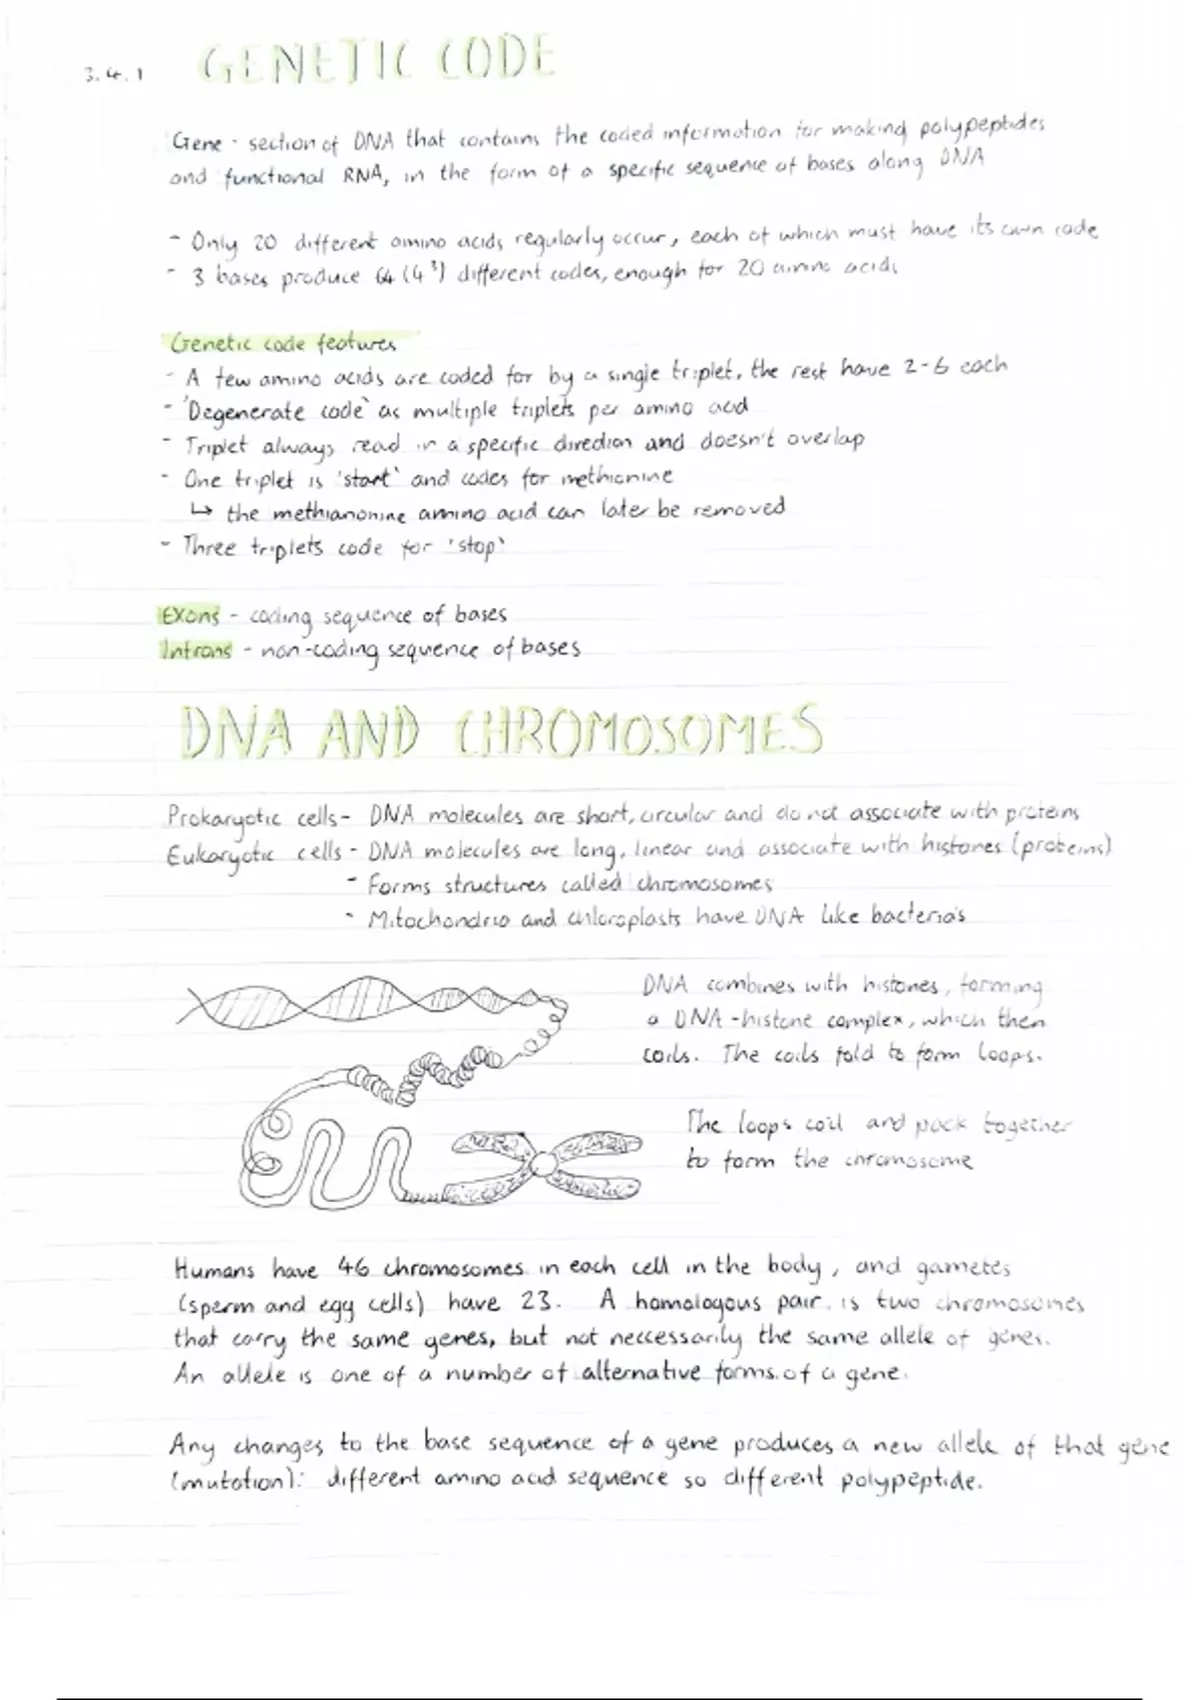 3.4.1 GENETIC CODE
Gene - section of DNA that contains the coded information for making polypeptides
and functional RNA, in the form of a specific sequence of bases along DNA
- Only 20 different amino acids regularly occur, each of which must have its own code
- 3 bases produce 64 (4³) different codes, enough for 20 amino acids
Genetic code features
- A few amino acids are coded for by a single triplet, the rest have 2-6 each
- 'Degenerate code' as multiple triplets per amino acid
- Triplet always read in a specific direction and doesn't overlap
- One triplet is 'start' and codes for methionine
↳ the methianonine amino acid can later be removed
- Three triplets code for 'stop'
Exons - coding sequence of bases
Introns - non-coding sequence of bases
DNA AND CHROMOSOMES
Prokaryotic cells - DNA molecules are short, circular and do not associate with proteins
Eukaryotic cells - DNA molecules are long, linear and associate with histones (proteins)
- Forms structures called chromosomes
- Mitochondria and chloroplasts have DNA like bacteria's
DNA combines with histones, forming
a DNA-histone complex, which then
coils. The coils fold to form loops.
The loops coil and pack together
to form the chromosome
Humans have 46 chromosomes in each cell in the body, and gametes
(sperm and egg cells) have 23. A homologous pair is two chromosomes
that carry the same genes, but not neccessarily the same allele of genes.
An allele is one of a number of alternative forms of a gene.
Any changes to the base sequence of a gene produces a new allele of that gene
(mutation): different amino acid sequence so different polypeptide.